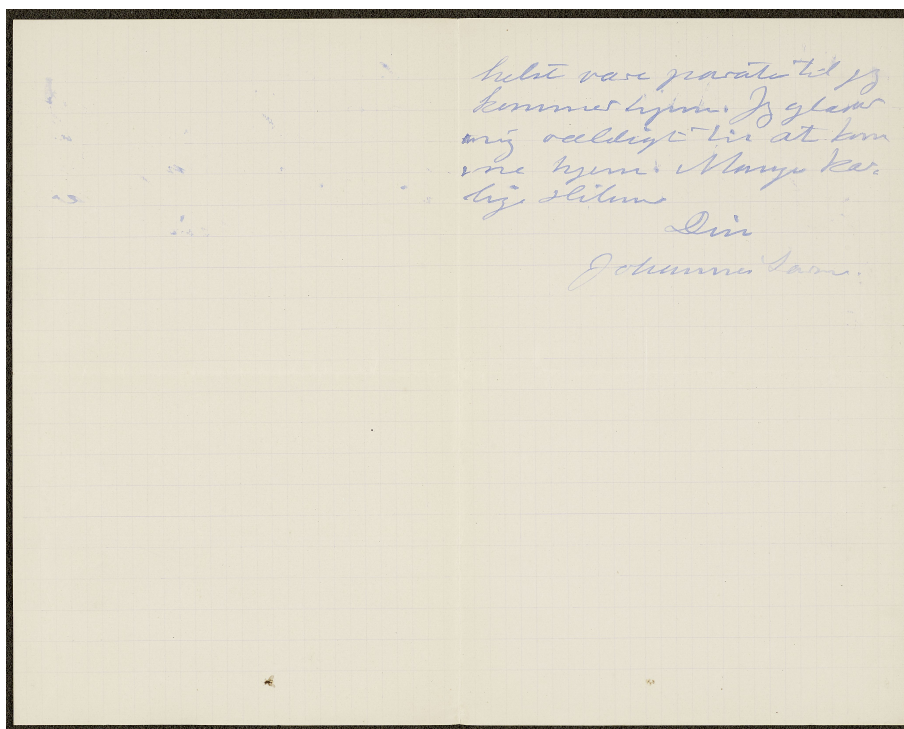 helst være parate til jeg
kommer hjem. Jeg glæder
mig vældigt til at kom
me hjem. Mange kær-
lige Hilsner
Din
Johannes Larsen.